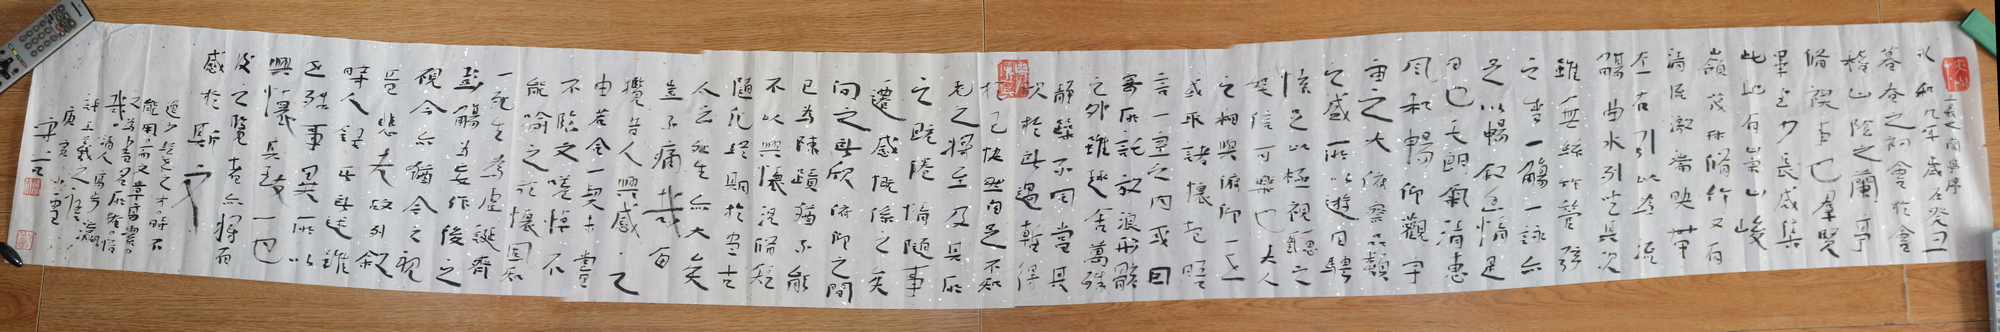 王羲之蘭亭序
永和九年歲在癸丑
暮春之初會於會
稽山陰之蘭亭
脩禊事也羣賢
畢至少長咸集
此地有崇山峻
嶺茂林脩竹又有
清流激湍映帶
左右引以為流
觴曲水列坐其次
雖無絲竹管弦
之盛一觴一詠亦
足以暢敘幽情是
日也天朗氣清惠
風和暢仰觀宇
宙之大俯察品類
之盛所以遊目騁
懷足以極視聽之
娛信可樂也夫人
之相與俯仰一世
或取諸懷抱晤
言一室之內或因
寄所託放浪形骸
之外雖趣舍萬殊
靜躁不同當其
欣於所遇暫得
於己快然自足不知
老之將至及其所
之既倦情隨事
遷感慨係之矣
向之所欣俯仰之間
已為陳蹟猶不能
不以興懷況脩短
隨化終期於盡古
人云死生亦大矣
豈不痛哉每
攬昔人興感之
由若合一契未嘗
不臨文嗟悼不
能喻之於懷固知
一死生為虛誕齊
彭殤為妄作後之
視今亦猶今之視
昔悲夫故列敘
時人錄其所述雖
世殊事異所以
興懷其致一也
後之覽者亦將有
感於斯文
庚寅